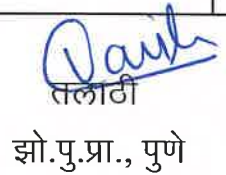 तलाठी
झो.पु.प्रा., पुणे